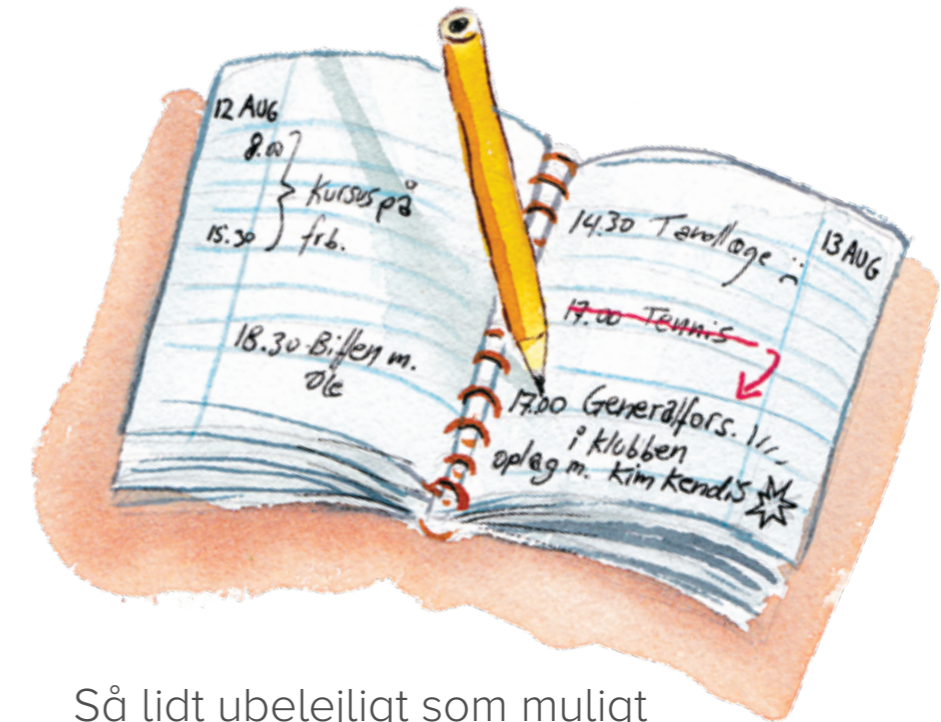 12 AUG
8.00
Kursus på
15.30 frb.
18.30 Biffen m.
Ole
13 AUG
14.30 Tandlæge
17.00 Tennis
17.00 Generalfors. !!!
i klubben
oplæg m. Kim Kendis
Så lidt ubelejligt som muligt